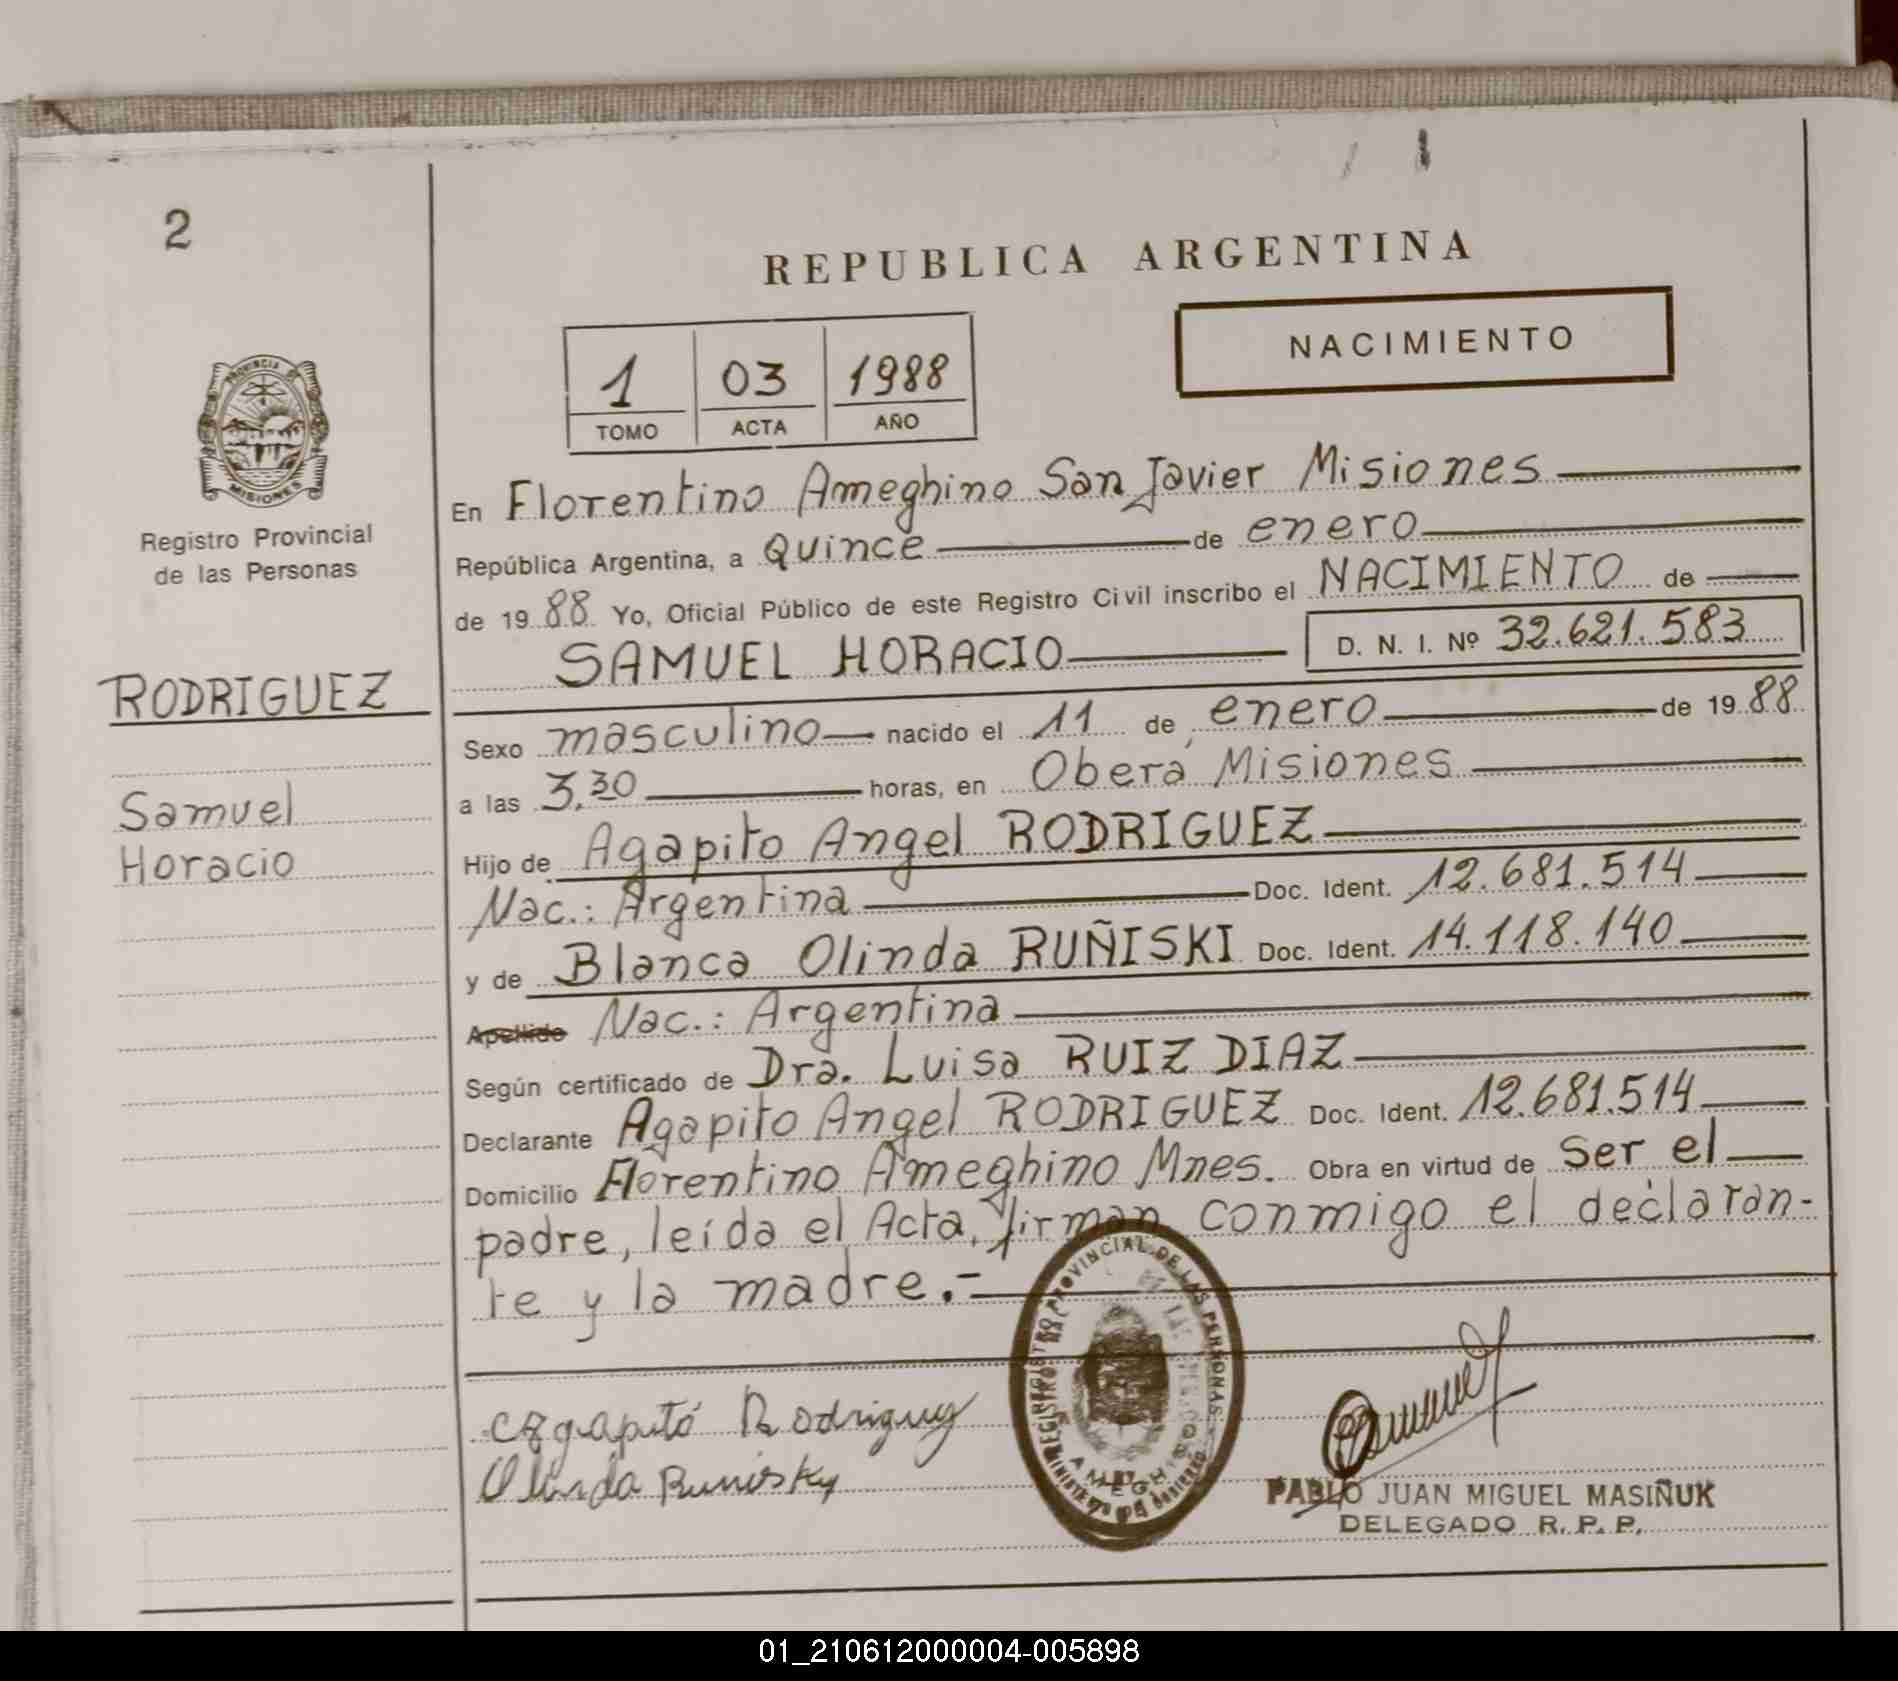 2
REPUBLICA ARGENTINA
NACIMIENTO
1 03 1988
TOMO ACTA AÑO
PROVINCIA DE
MISIONES
Registro Provincial
de las Personas
RODRIGUEZ
Samuel
Horacio
En Florentino Ameghino San Javier Misiones
República Argentina, a Quince de enero
de 19 88 Yo, Oficial Público de este Registro Civil inscribo el NACIMIENTO de
SAMUEL HORACIO D. N. I. Nº 32.621.583
Sexo masculino nacido el 11 de enero de 19 88
a las 3,30 horas, en Oberá Misiones
Hijo de Agapito Angel RODRIGUEZ
Nac.: Argentina Doc. Ident. 12.681.514
y de Blanca Olinda RUÑISKI Doc. Ident. 14.118.140
Apellido Nac.: Argentina
Según certificado de Dra. Luisa RUIZ DIAZ
Declarante Agapito Angel RODRIGUEZ Doc. Ident. 12.681.514
Domicilio Florentino Ameghino Mnes. Obra en virtud de ser el
padre, leída el Acta, firman conmigo el declaran-
te y la madre.-
REGISTRO PROVINCIAL DE LAS PERSONAS
Agapito Rodriguez
Olinda Runisky
PABLO JUAN MIGUEL MASIÑUK
DELEGADO R. P. P.
01_210612000004-005898